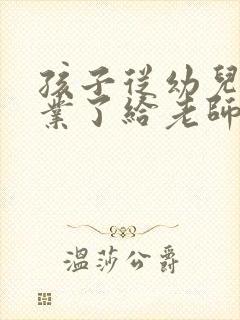 孩子從幼兒
業了給老師
溫莎公爵